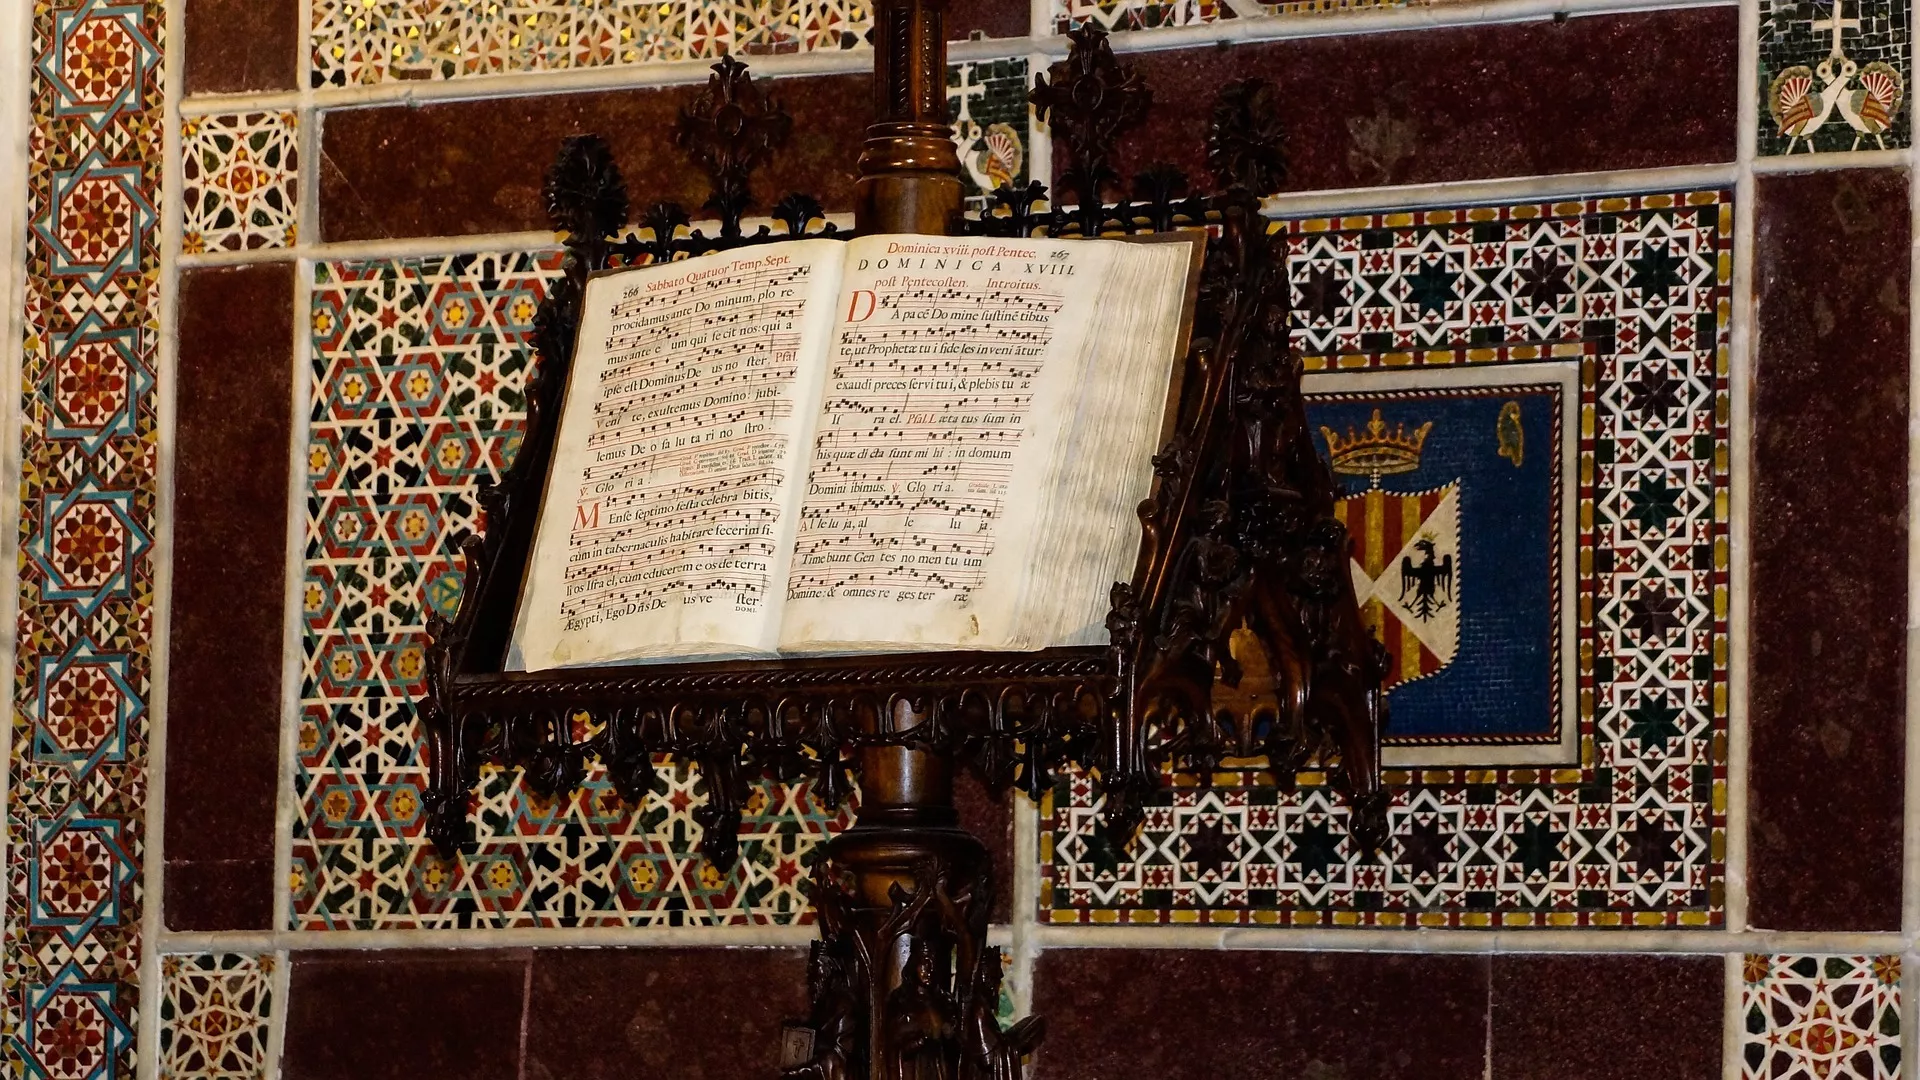 266 Sabbato Quatuor Temp. Sept.
procidamus ante Do minum, plo re-
mus ante e um qui fe cit nos: qui a
ipſe eſt Dominus De us no ſter. Pſal.
Veni te, exultemus Domino: jubi-
lemus De o ſa lu ta ri no ſtro.
℣. Glo ri a.
MEnſe ſeptimo feſta celebra bitis,
cùm in tabernaculis habitare fecerim fi-
li os Iſra el, cùm educerem e os de terra
Ægypti, Ego Dñs De us ve ſter.
DOMI.
Dominica xviii. poſt Pentec. 267
DOMINICA XVIII.
poſt Pentecoſten. Introitus.
DA pa cē Do mine ſuſtinē tibus
te, ut Prophetæ tu i fide les in veni ātur:
exaudi preces ſervi tu i, & plebis tu æ
Iſ ra el. Pſal. Læta tus ſum in
his quæ di cta ſunt mi hi: in domum
Domini ibimus. ℣. Glo ri a.
Al le lu ja, al le lu ja.
Timebunt Gen tes no men tu um
Domine: & omnes re ges ter ræ